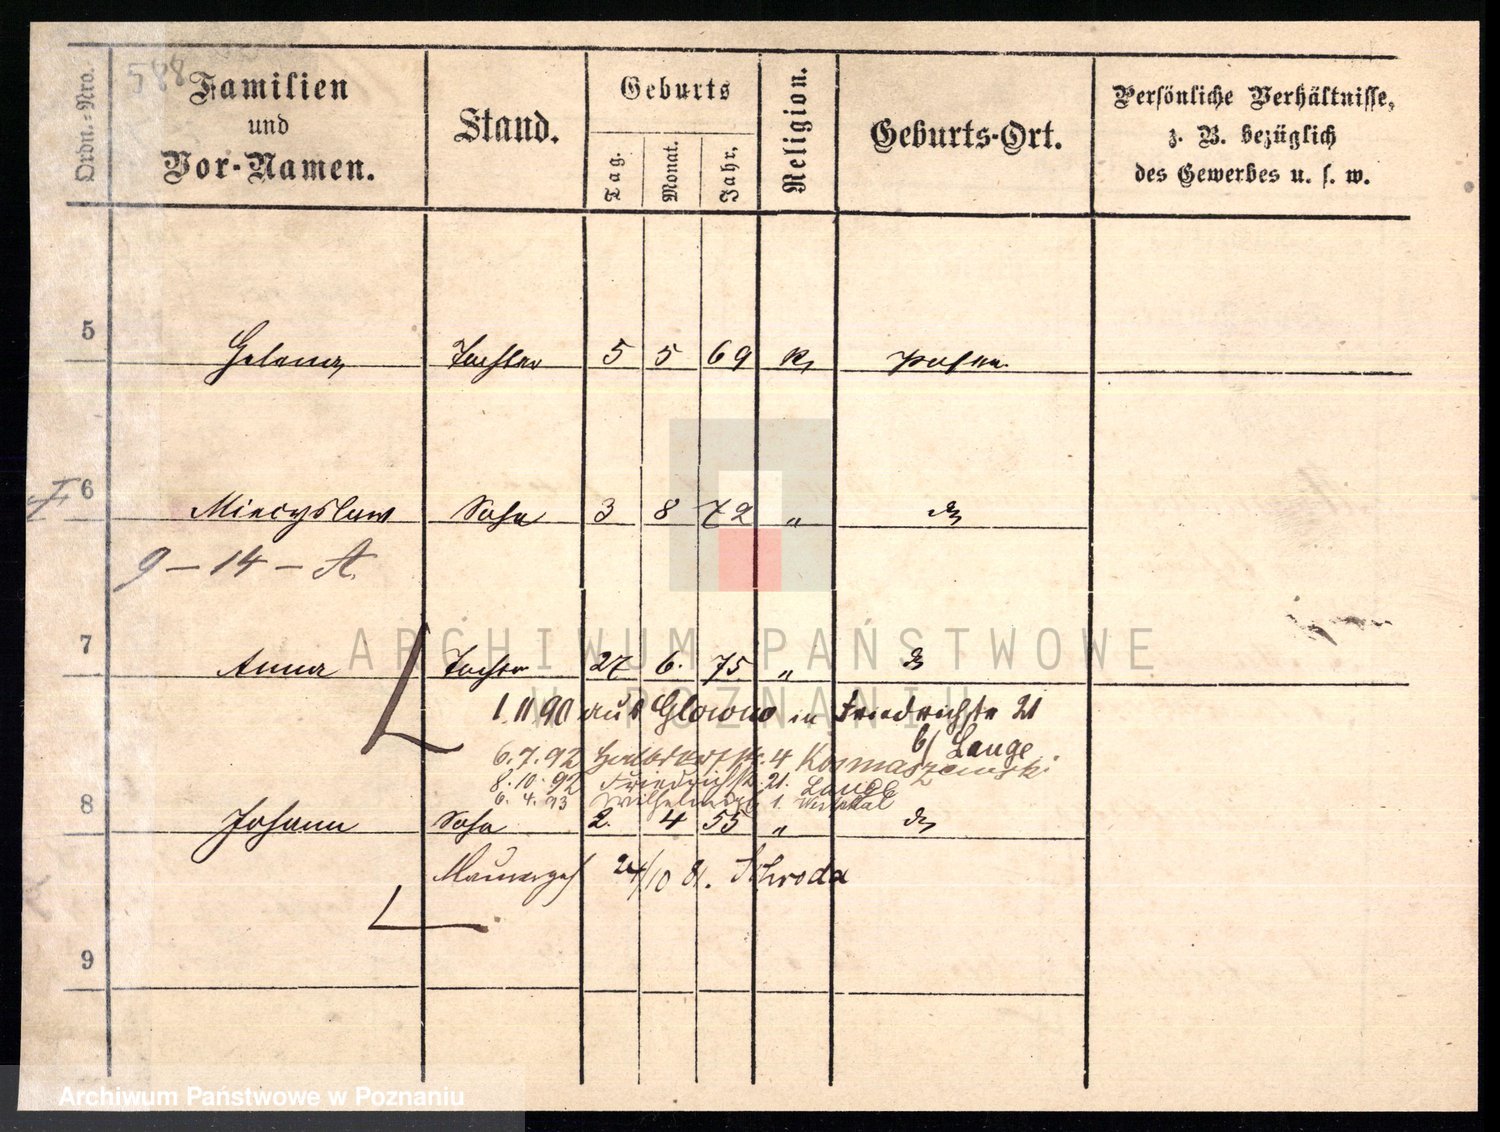 588
Ordn.-Nro.
Familien
und
Vor-Namen.
Stand.
Geburts
Tag.
Monat.
Jahr.
Religion.
Geburts-Ort.
Persönliche Verhältnisse,
z. B. bezüglich
des Gewerbes u. s. w.
5 Helena Tochter 5 5 69 K Posen
6 Miecyslaw Sohn 3 8 72 "
9 - 14 - A.
7 Anna Tochter 27 6. 75. "
1. 11 90 aus Glowno in Friedrichstr 21
b/ Lange
6.7.92 Halbdorfstr. 4 Kosmaszewski
8.10.92 Friedrichstr. 21. Lange
6. 4. 93 Wilhelmspl 1.
8 Johann Sohn 2. 4 55 "
Maurerges 24/10 81. Schroda
9
ARCHIWUM PAŃSTWOWE
W POZNANIU
Archiwum Państwowe w Poznaniu